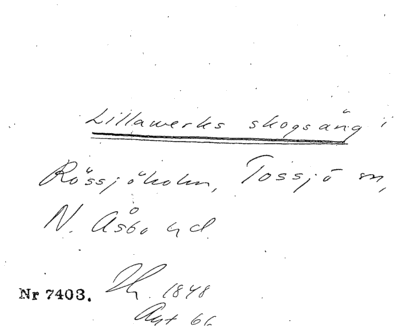 Lillawerks skogsäng i
Rössjöholm, Tossjö sn,
N. Åsbo hd.
Nr 7403. 1848
Akt 66